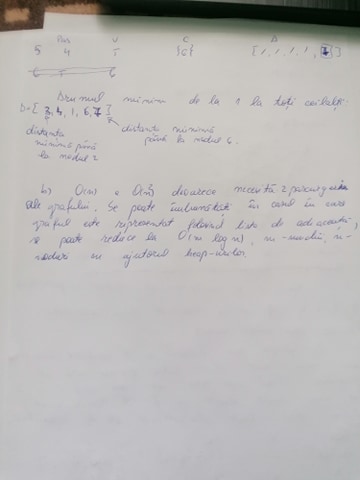 Pas u C D
5 4 5 {6} [ , , , , , 7]
Drumul minim de la 1 la toți ceilalți
D=[ 3, 4, 1, 6, 7 ]
distanța minimă până la nodul 2
distanța minimă până la nodul 6.
b) O(n) * O(n) deoarece necesită 2 parcurgeri
ale grafului. Se poate îmbunătăți în cazul în care
graful este reprezentat folosind liste de adiacență,
se poate reduce la O(m log n), m - muchii, n -
noduri cu ajutorul heap-urilor.